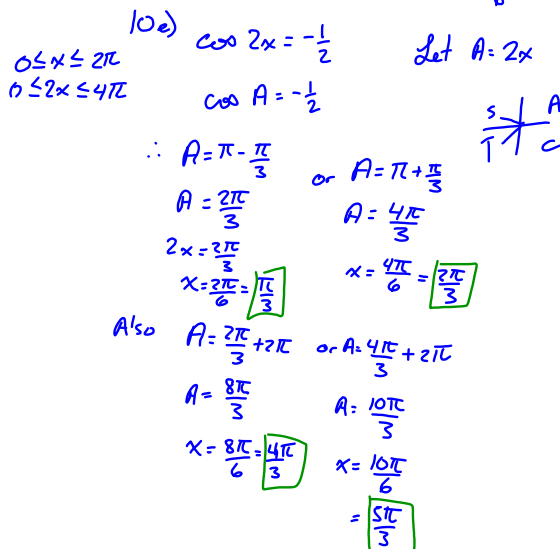 10e) cos 2x = -1/2 Let A = 2x
0 ≤ x ≤ 2π
0 ≤ 2x ≤ 4π
cos A = -1/2
S A
T C
∴ A = π - π/3 or A = π + π/3
A = 2π/3 A = 4π/3
2x = 2π/3
x = 2π/6 = π/3 x = 4π/6 = 2π/3
Also A = 2π/3 + 2π or A = 4π/3 + 2π
A = 8π/3 A = 10π/3
x = 8π/6 = 4π/3 x = 10π/6
= 5π/3